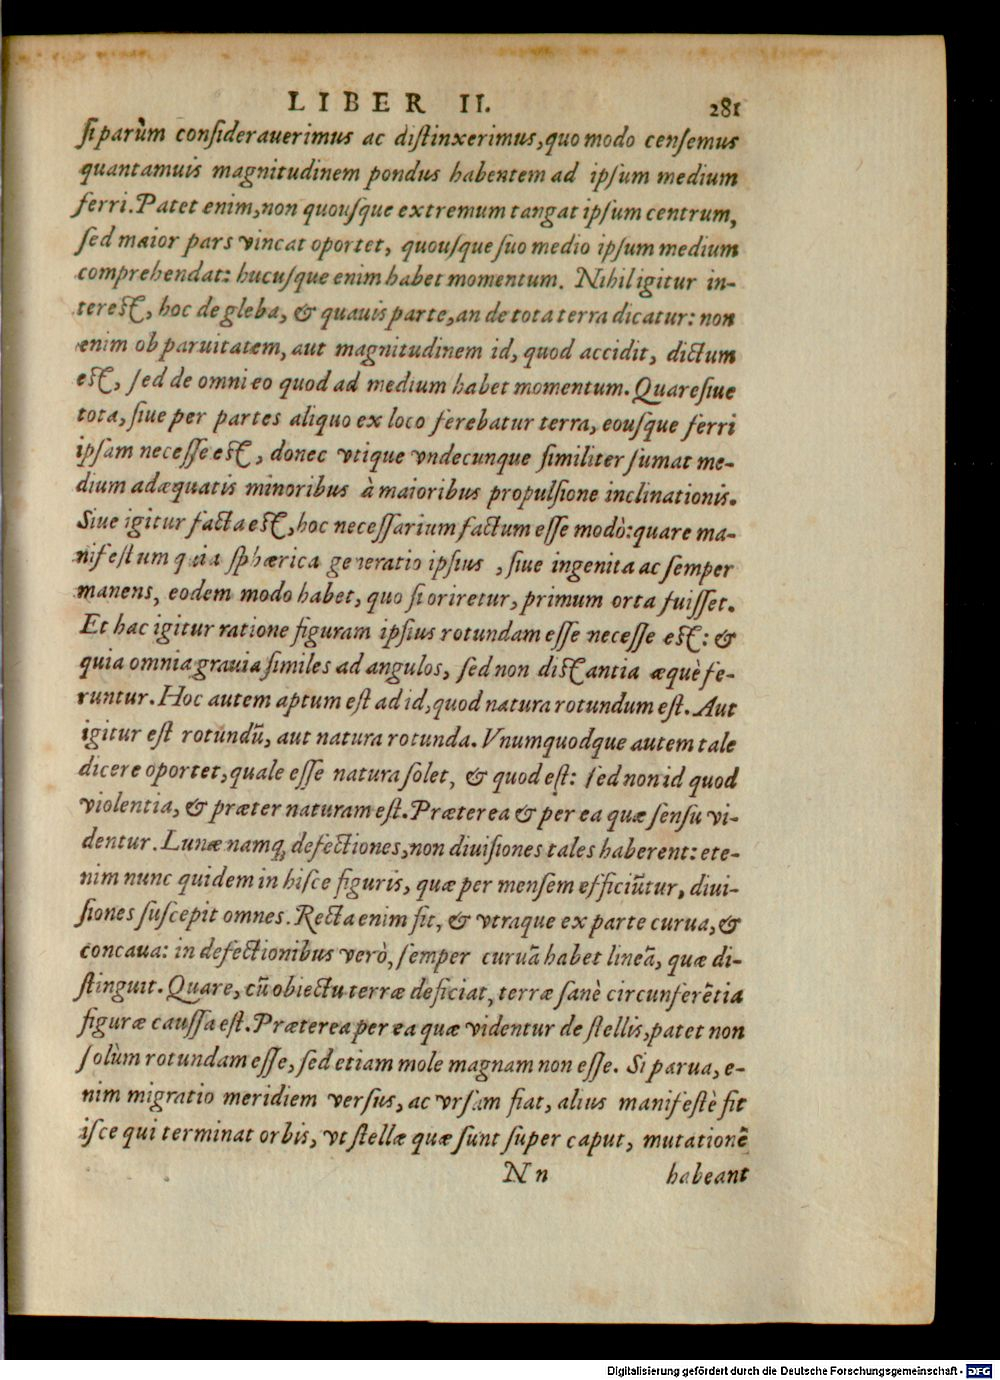 LIBER II. 281
si parùm considerauerimus ac distinxerimus, quo modo censemus
quantamuis magnitudinem pondus habentem ad ipsum medium
ferri. Patet enim, non quousque extremum tangat ipsum centrum,
sed maior pars vincat oportet, quousque suo medio ipsum medium
comprehendat: hucusque enim habet momentum. Nihil igitur in-
terest, hoc de gleba, & quauis parte, an de tota terra dicatur: non
enim ob paruitatem, aut magnitudinem id, quod accidit, dictum
est, sed de omni eo quod ad medium habet momentum. Quare siue
tota, siue per partes aliquo ex loco ferebatur terra, eousque ferri
ipsam necesse est, donec vtique vndecunque similiter sumat me-
dium adæquatis minoribus à maioribus propulsione inclinationis.
Siue igitur facta est, hoc necessarium factum esse modò: quare ma-
nifestum quia sphærica generatio ipsius, siue ingenita ac semper
manens, eodem modo habet, quo si oriretur, primum orta fuisset.
Et hac igitur ratione figuram ipsius rotundam esse necesse est: &
quia omnia grauia similes ad angulos, sed non distantia æquè fe-
runtur. Hoc autem aptum est ad id, quod natura rotundum est. Aut
igitur est rotundũ, aut natura rotunda. Vnumquodque autem tale
dicere oportet, quale esse natura solet, & quod est: sed non id quod
violentia, & præter naturam est. Præterea & per ea quæ sensu vi-
dentur. Lunæ namq; defectiones, non diuisiones tales haberent: ete-
nim nunc quidem in hisce figuris, quæ per mensem efficiũtur, diui-
siones suscepit omnes. Recta enim fit, & vtraque ex parte curua, &
concaua: in defectionibus verò, semper curuã habet lineã, quæ di-
stinguit. Quare, cũ obiectu terræ deficiat, terræ sanè circunferẽtia
figuræ caussa est. Præterea per ea quæ videntur de stellis, patet non
solùm rotundam esse, sed etiam mole magnam non esse. Si parua, e-
nim migratio meridiem versus, ac vrsam fiat, alius manifestè fit
isce qui terminat orbis, vt stellæ quæ sunt super caput, mutationẽ
N n habeant
Digitalisierung gefördert durch die Deutsche Forschungsgemeinschaft - DFG